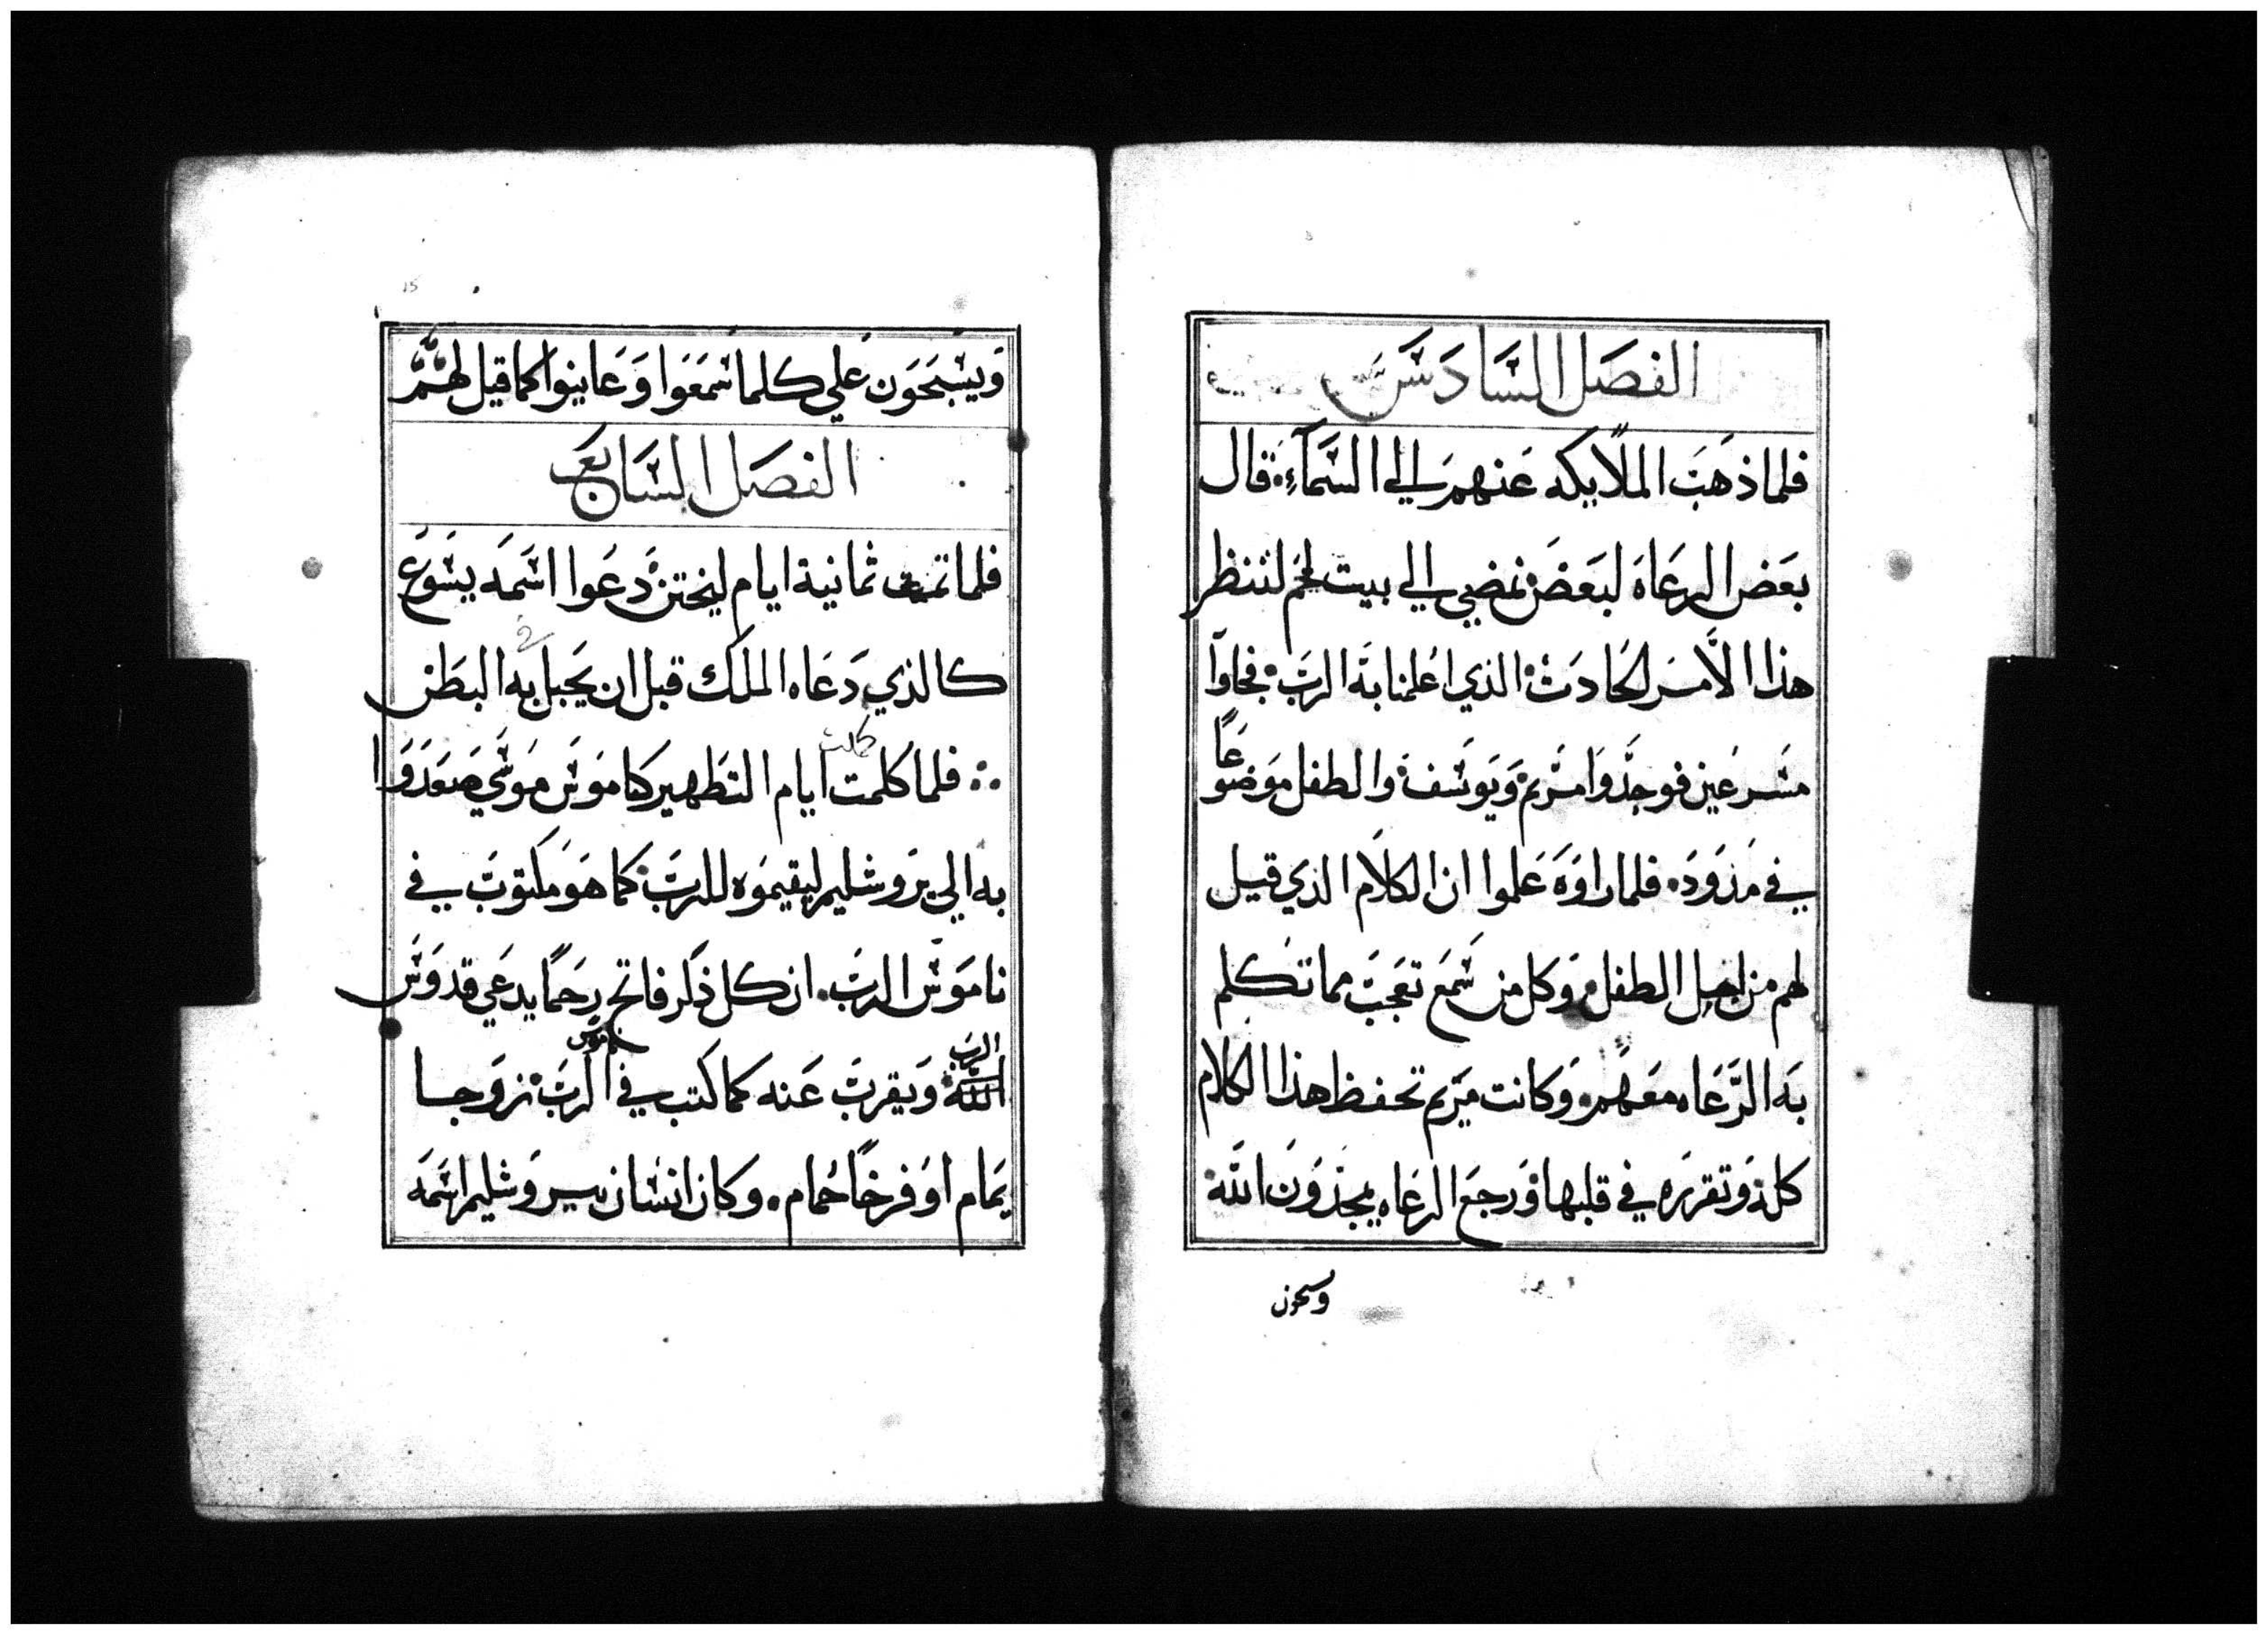 الفصل السادس
فلما ذهبت الملايكه عنهم الي السماء قال
بعض الرعاه لبعض نمضي الي بيت لحم لننظر
هذا الامر الحادث الذي اعلمنا به الرب فجاوا
مسرعين فوجدوا مريم ويوسف والطفل موضوعًا
في مذود فلما راوه علموا ان الكلام الذي قيل
لهم من اجل الطفل وكل من سمع تعجب مما تكلم
به الرعاه معهم وكانت مريم تحفظ هذا الكلام
كله وتقرره في قلبها ورجع الرعاه يمجدون الله
ويسبحون علي كلما سمعوا وعاينوا كما قيل لهم
الفصل السابع
فلما تمت ثمانية ايام ليختن دعوا اسمه يسوع
كالذي دعاه الملك قبل ان يحبل به البطن
كملت
فلما كلمت ايام التطهير كناموس موسي صعدوا
به الي يروشليم ليقيموه للرب كما هو مكتوب في
ناموس الرب ان كل ذكر فاتح رحمًا يدعي قدوس
الرب ناموس
الله ويقرب عنه كما كتب في الرب زوجا
يمام او فرخا حمام وكان انسان بيروشليم اسمه